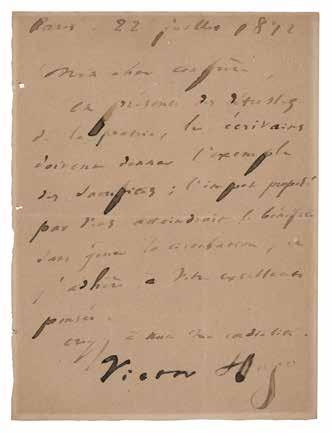 Paris - 22 juillet 1872
Mon cher confrère,
En présence des désastres
de la patrie, les écrivains
doivent donner l'exemple
des sacrifices ; l'impôt proposé
par vous atteindrait le bénéfice
sans gêner la circulation, et
j'adhère à votre excellente
pensée.
à mon cordialité.
Victor Hugo